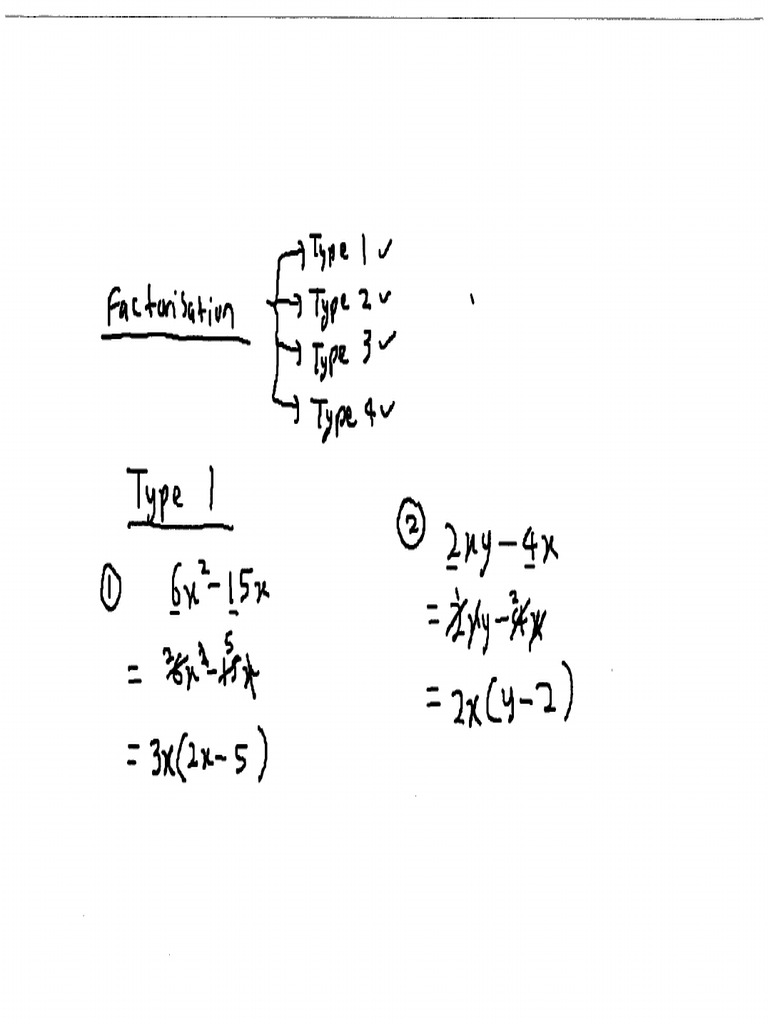 Factorisation
Type 1 ✓
Type 2 ✓
Type 3 ✓
Type 4 ✓
Type 1
① 6x² - 15x
= 3x(2x - 5)
② 2xy - 4x
= 2x(y - 2)